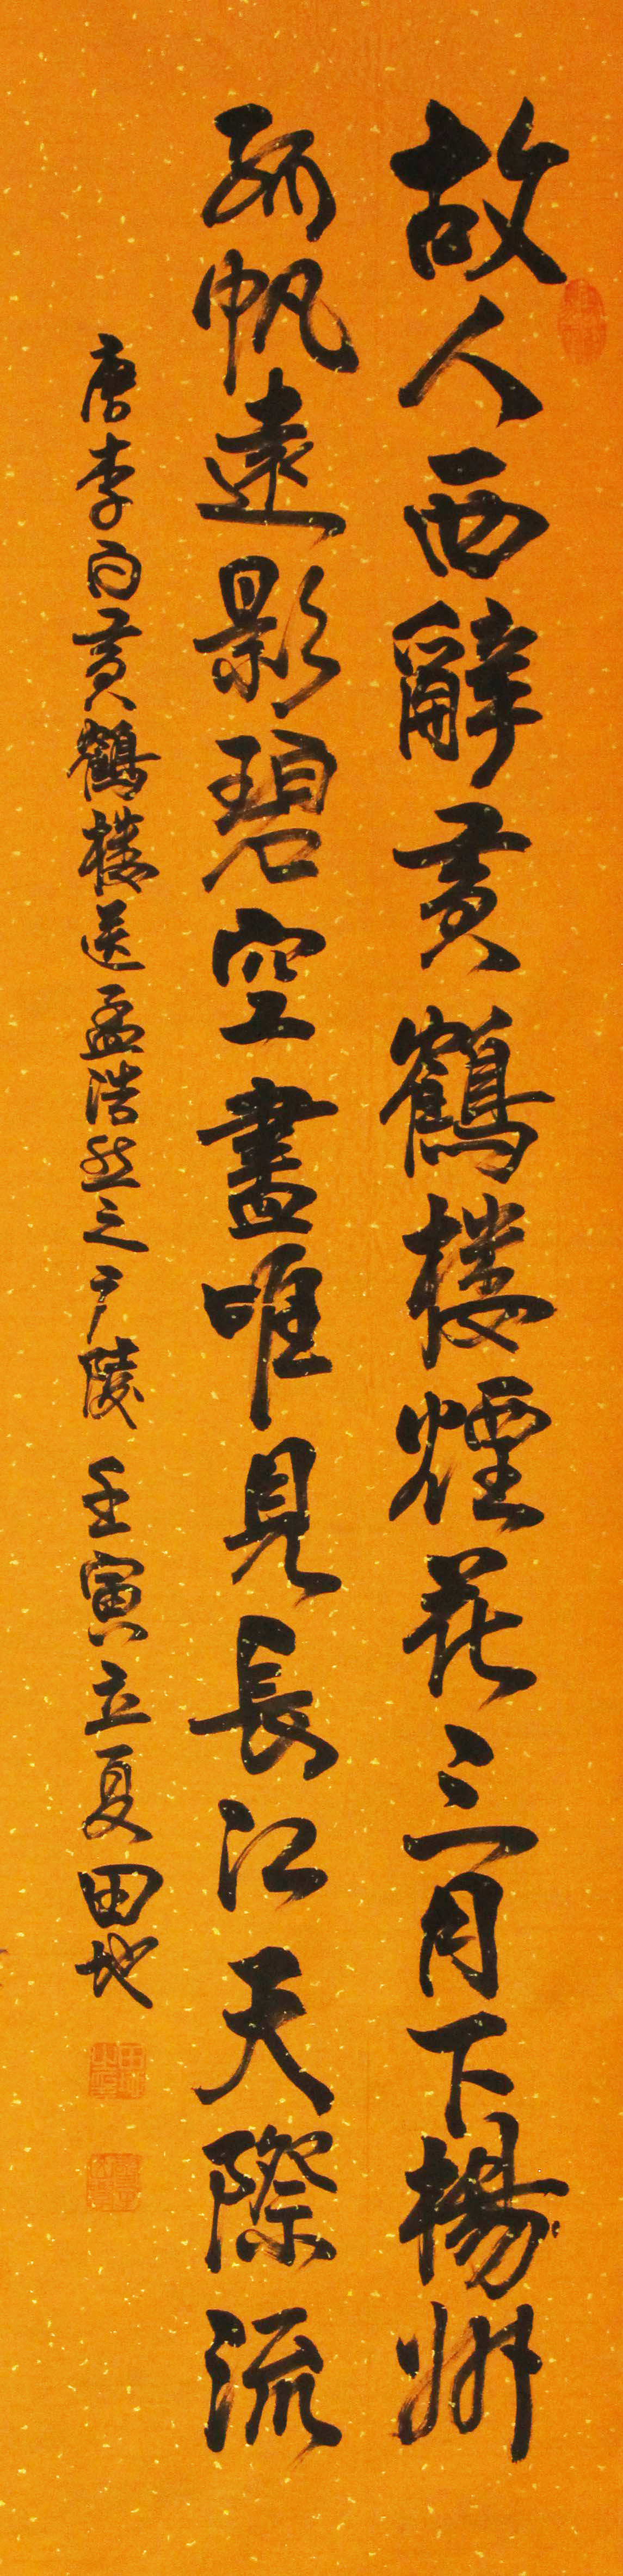 故人西辭黃鶴樓煙花三月下楊州
孤帆遠影碧空盡唯見長江天際流
唐李白黃鶴樓送孟浩然之广陵 壬寅立夏田地